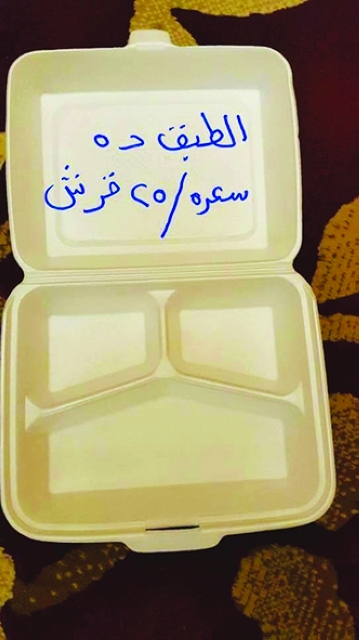 الطبق ده
سعره / ٢٥ قرش